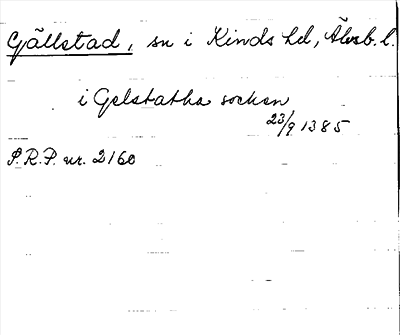 Gällstad, sn i Kinds hd, Älvsb. l.
i Gelstatha socken
23/9 1385
P.R.P. nr. 2160